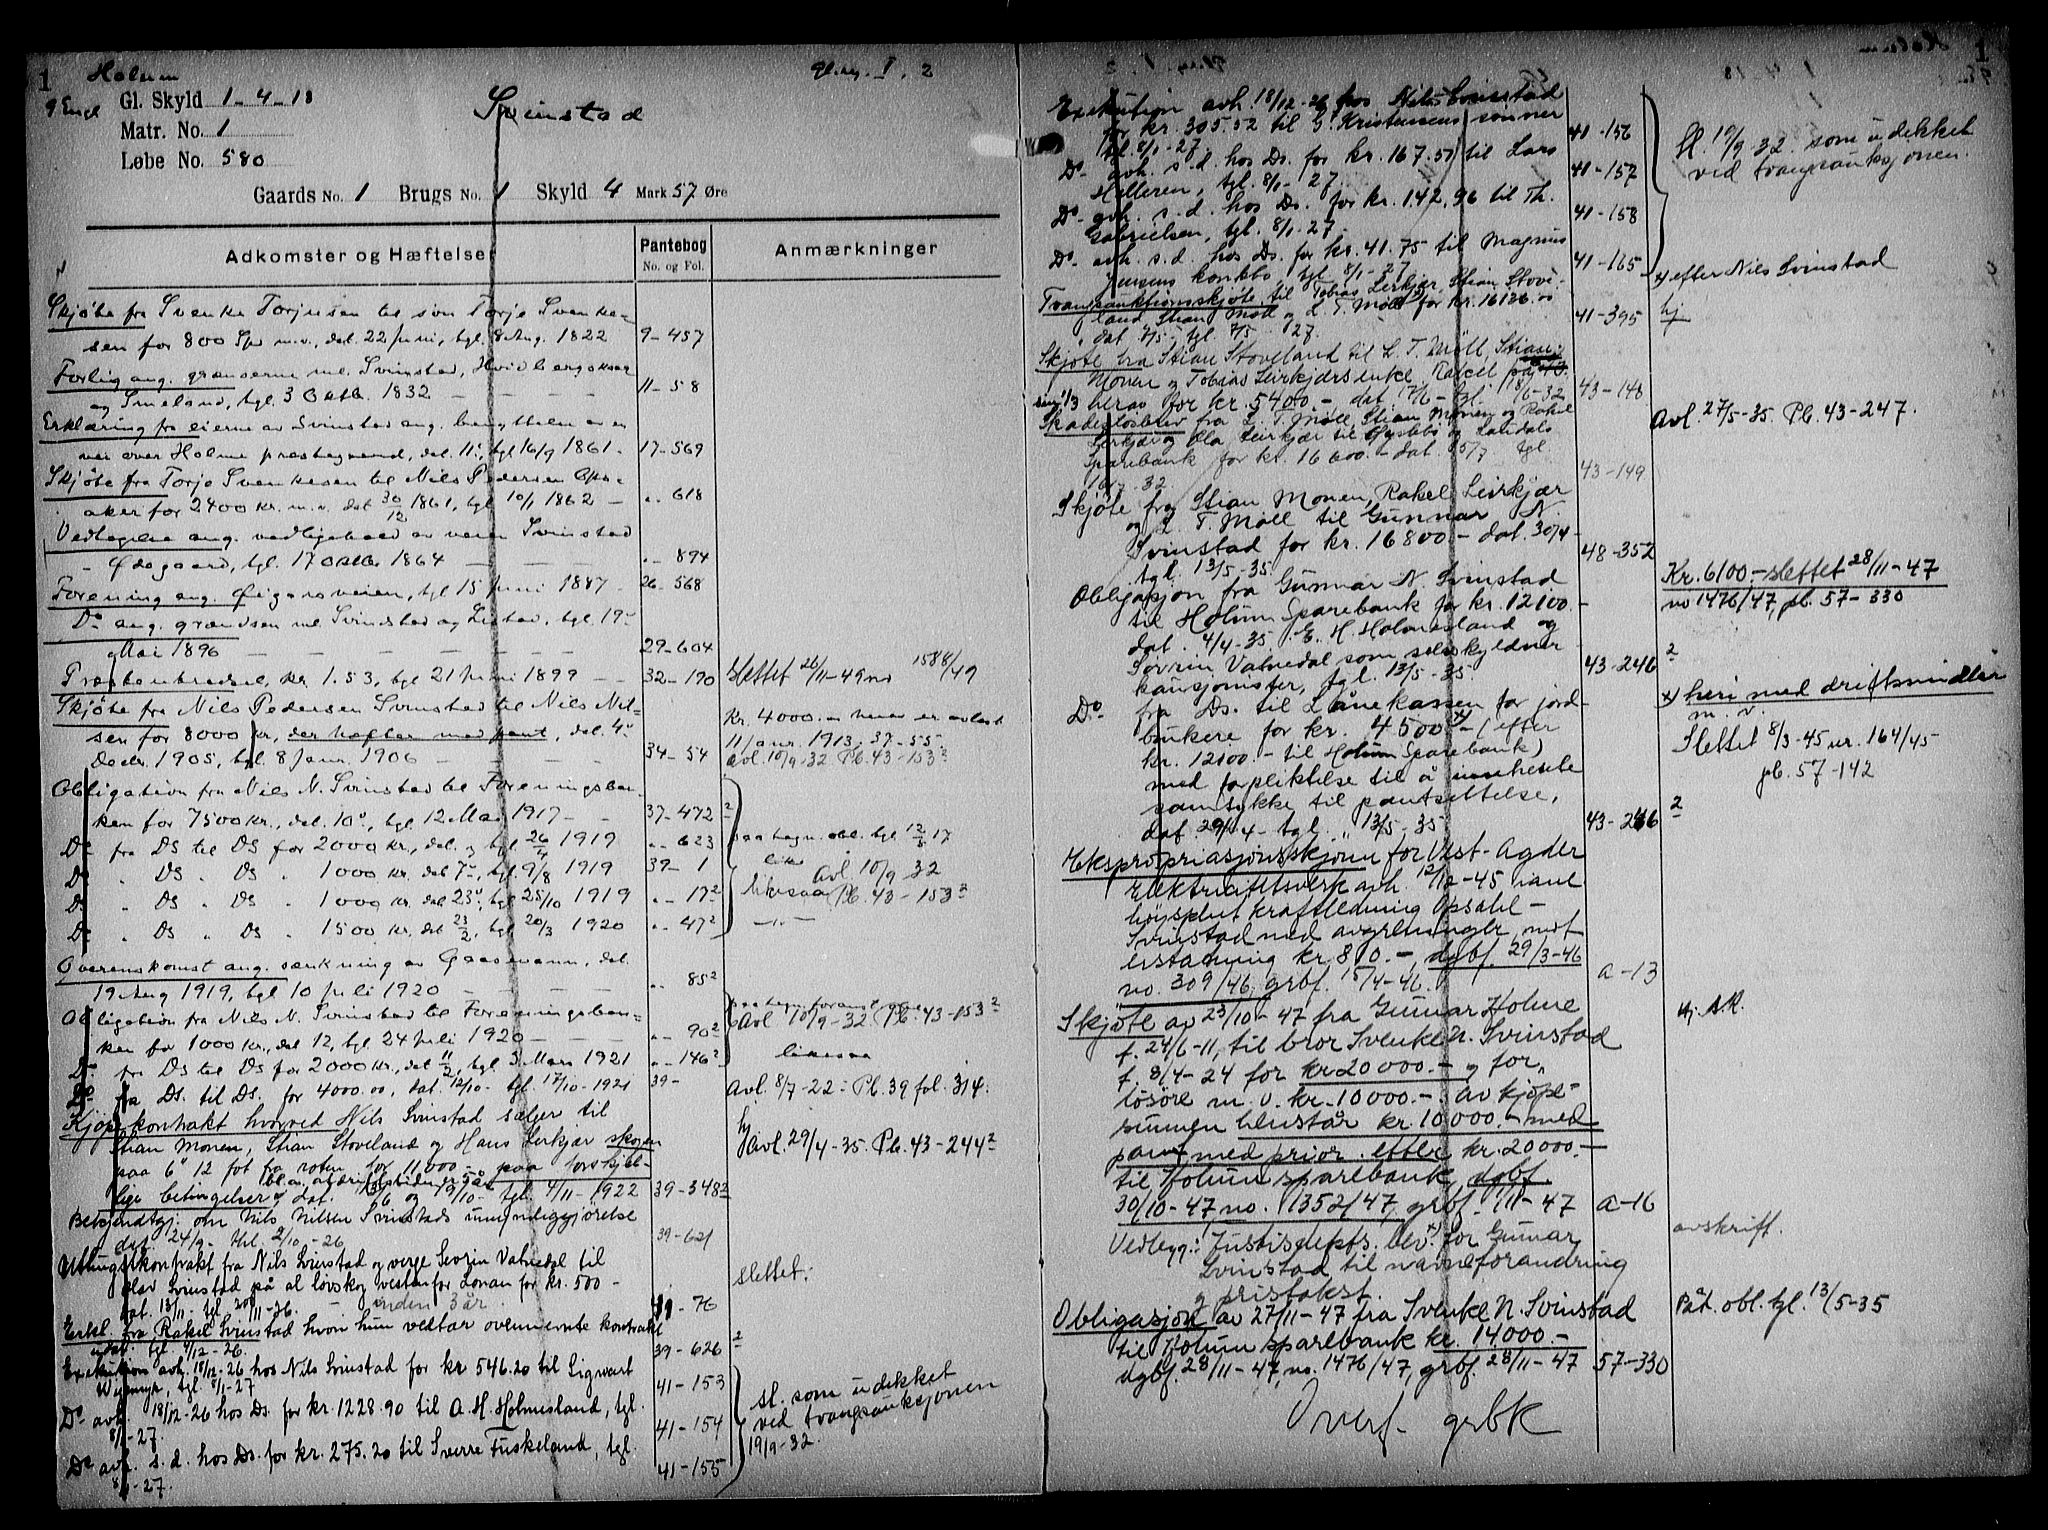 1 Holum gl.reg. I. 2
Gl. Skyld 1-4-18
Svinstad
Matr. No. 1
Løbe No. 580
Gaards No. 1 Brugs No. 1 Skyld 4 Mark 57 Øre
Adkomster og Hæftelser
Pantebog No. og Fol.
Anmærkninger
Skjøte fra Svenke Torjusen til søn Torje Svenke-
sen for 800 Spd m.v., dat. 22 juni, tgl. 8 Aug. 1822 9-457
Forlig ang. grænserne ml. Svinstad, Hvidbergskaa
og Smeland, tgl. 3 Oktb. 1832 11-58
Erklæring fra eierne av Svinstad ang. benyttelse av en
vei over Holme præstegaard, dat. 11., tgl. 16/9 1861. 17-569
Skjøte fra Torje Svenkesen til Nils Pedersen
aker for 2400 kr. m.v. dat 30/12 1861, tgl 10/1 1862 „- 618
Vedtagelse ang. vedligehold av veien Svinstad
- Ødegaard, tgl. 17 Oktb. 1864 „- 894
Forening ang. veien, tgl 15 juni 1887 26-568
Do ang. grændsen ml. Svindstad og Listad, tgl. 19
Mai 1896 29-604
Præstenbredsel, kr. 1.53, tgl 21 juni 1899 32-190 Slettet 26/11-49 no 1588/49
Skjøte fra Nils Pedersen Svinstad til Nils Nil-
sen for 8000 kr, der hæfter med pant, dat. 4.
Decbr. 1905, tgl 8 Janr. 1906 34-54
Kr. 4000.- herav er avlæst
11 janr. 1913, 37-55
avl. 10/9-32 Pb. 43-153²
Obligation fra Nils N. Svinstad til Foreningsban-
ken for 7500 kr., dat. 10., tgl. 12 Mai 1917 37-472²
Do fra Ds til Ds for 2000 kr., dal. og tgl 26/4 1919 „- 623 paategn. obl. tgl 12/5 17
Do „ Ds „ Ds „ 1000 kr. dat 7., tgl. 9/8 1919 39-1 like Avl. 10/9 32
Do „ Ds „ Ds „ 1000 kr. dat 23., tgl 25/10 1919 „- 17² likesaa Pb. 43-153²
Do „ Ds „ Ds „ 1500 kr, dat 23/2, tgl 20/3 1920 „- 47² -„-
Overenskomst ang. sænkning av Gaasevann, dat.
19 Aug 1919, tgl 10 juli 1920 „- 85²
Obligation fra Nils N. Svinstad til Foreningsban-
ken for 1000 kr., dat 12, tgl 24 juli 1920 „- 90² Avl 10/9-32 Pb. 43-153²
Do fra Ds til Ds for 2000 kr., dat 11/2, tgl 3 Mars 1921 „- 146² likesaa
Do fra Ds. til Ds. for 4000.00, dat. 12/10- tgl. 17/10-1921 39- Avl. 8/7-22: Pb. 39 fol. 314.
Kjøpekontrakt hvorved Nils Svinstad sælger til
Stian Monen, Stian Stoveland og Hans Leirkjær skogen
paa 6" 12 fot fra roten for 11,000.- paa forskjel-
lige betingelser, dat. 6 og 19/10- tgl. 4/11-1922 39-348²
hj
Avl. 29/4-35. Pb. 43-244²
Bekjendtgj. om Nils Nilsen Svinstads umyndiggjørelse
dat. 24/9- tgl. 2/10-26 39-621
Utlugskontrakt fra Nils Svinstad og verge Sevrin Vatnedal til
Olav Svinstad på al løvskog vestenfor Lonan for kr. 500-
dat. 13/11- tgl. 20/11-26. - inden 3 år. 41-76 slettet.
Erkl. fra Rakel Svinstad hvori hun vedtar ovennevnte kontrakt
utst. tgl. 4/12-26. 39-626²
Exekution avh. 18/12-26 hos Nils Svinstad for kr 546.20 til Sigwart
Wigemyr, tgl. 8/1-27 41-153
Do avh. 18/12-26 hos Ds. for kr. 1228.90 til A. H. Holmesland, tgl.
8/1-27. 41-154
Do avh. s.d. hos Ds. for kr. 275.20 til Sverre Fuskeland, tgl.
8/1-27. 41-155
sl. som udekket
ved tvangsauksjonen
19/9-32.
Holum 1
Exekution avh. 18/12-26 hos Nils Svinstad
for kr. 305.52 til G. Kristensens sønner
tgl. 8/1-27. 41-156
Do avh. s.d. hos Ds. for kr. 167.51 til Lars
Helleren, tgl. 8/1-27. 41-157
Do avh. s.d. hos Ds. for kr. 142,96 til Th.
Gabrielsen, tgl. 8/1-27. 41-158
Do avh. s.d. hos Ds. for kr. 41.75 til Magnus
Jensens konkbo, tgl. 8/1-27 41-165
Sl. 19/9-32. som udekket
ved tvangsauksjonen.
Tvangsauktionsskjøte til Tobias Leirkjær, Stian Stove-
land, Stian Moll og L. T. Moll for kr. 16126.00
dat. 7/5- tgl. 7/5 27. 41-395
x) efter Nils Svinstad
hj
Skjøte fra Stian Stoveland til L. T. Møll, Stian
Monen og Tobias Leirkjærs enke Rakel på
sin 1/3 herav for kr. 5400.- dat. 7/6- tgl. 18/6-32 43-148
Skadesløsbrev fra L. T. Møll, Stian Monen og Rakel
Leirkjær og Ola Leirkjær til Øyslebø og Laudals
Sparebank for kr. 16600.- dat. 15/7 tgl.
16/7-32 43-149
Avl. 27/5-35. Pb. 43-247.
Skjøte fra Stian Monen, Rakel Leirkjær
og L. T. Møll til Gunnar N.
Svinstad for kr. 16800.- dat. 30/4-
tgl. 13/5-35. 48-352
Obligasjon fra Gunnar N. Svinstad
til Holum Sparebank for kr. 12100.-
dat. 4/4-35. E. H. Holmesland og
Søvrin Vatnedal som selvskyldner
kausjonister, tgl. 13/5-35. 43-246²
Kr. 6100.- slettet 28/11-47
no 1476/47, pb. 57-330
Do fra Ds. til Lånekassen for jord-
brukere for kr. 4500 x)- (efter
kr. 12100.- til Holum Sparebank)
med forpliktelse til å innhente
samtykke til pantsettelse,
dat. 29/4- tgl. 13/5-35 43-246²
x) heri med driftsmidler
m. v.
Slettet 8/3-45 nr. 164/45
pb. 57-142
Ekspropriasjonsskjønn for Vest-Agder
Elektrisitetsverk avh. 12/12-45 
høyspent kraftledning Opsahl-
Svinstad med avgreninger, mot
erstatning kr 810.-, dgbf. 29/3-46
no. 309/46, grbf. 15/4-46. a-13
Skjøte av 23/10-47 fra Gunnar Holme
f. 24/6-11, til bror Svenke N. Svinstad
f. 8/4-24 for kr 20000.- og for
løsøre m. v. kr. 10000.-. av kjøpe-
summen henstår kr. 10000.- med
pant med prior. etter kr. 20000.-
til Holum sparebank, dgbf.
30/10-47, no. 1352/47, grbf. 1/11-47 a-16
hj. A.R.
Vedlegg: Justisdepts. bev. x) for Gunnar
Svinstad til navneforandring
og pristakst.
avskrift.
Obligasjon av 27/11-47 fra Svenke N. Svinstad
til Holum sparebank kr. 14000.-
dgbf. 28/11-47, no. 1476/47, grbf. 28/11-47 57-330
Påt. obl. tgl. 13/5-35
Overf. grbk